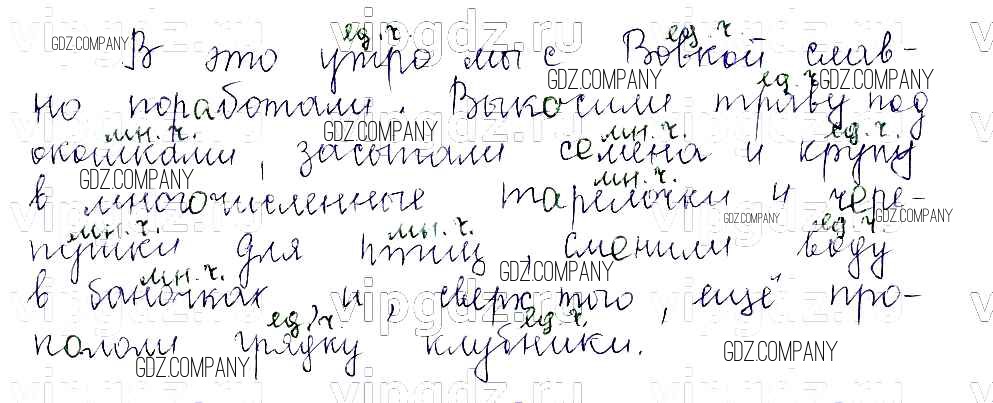 ед. ч. ед. ч.
В это утро мы с Вовкой слав-
GDZ.COMPANY GDZ.COMPANY ед. ч. GDZ.COMPANY
но поработали. Выкосили траву под
мн. ч. GDZ.COMPANY мн. ч. ед. ч.
окошками, засыпали семена и крупу
GDZ.COMPANY мн. ч.
в многочисленные тарелочки и чере-
мн. ч. мн. ч. GDZ.COMPANY ед. ч. GDZ.COMPANY
пушки для птиц, сменили воду
мн. ч. GDZ.COMPANY
в баночках и, сверх того, ещё про-
ед. ч. ед. ч.
пололи грядку клубники.
GDZ.COMPANY GDZ.COMPANY
vipgdz.ru